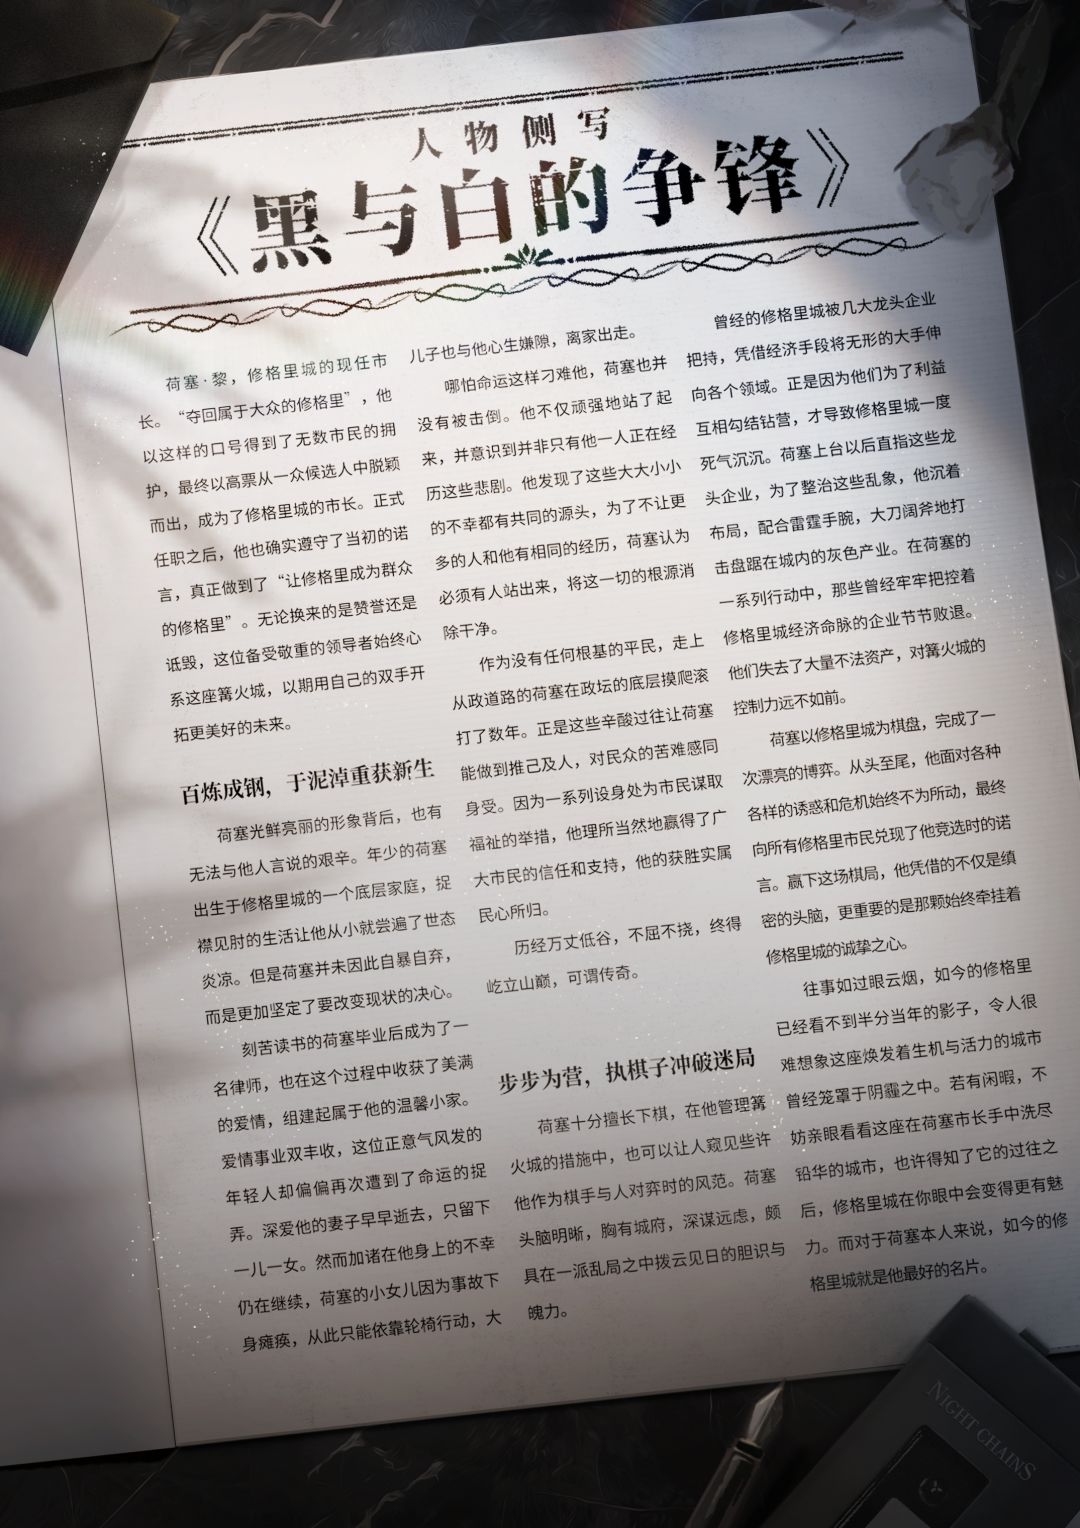 人物侧写
《黑与白的争锋》
荷塞·黎，修格里城的现任市
长。“夺回属于大众的修格里”，他
以这样的口号得到了无数市民的拥
护，最终以高票从一众候选人中脱颖
而出，成为了修格里城的市长。正式
任职之后，他也确实遵守了当初的诺
言，真正做到了“让修格里成为群众
的修格里”。无论换来的是赞誉还是
诋毁，这位备受敬重的领导者始终心
系这座篝火城，以期用自己的双手开
拓更美好的未来。
百炼成钢，于泥淖重获新生
荷塞光鲜亮丽的形象背后，也有
无法与他人言说的艰辛。年少的荷塞
出生于修格里城的一个底层家庭，捉
襟见肘的生活让他从小就尝遍了世态
炎凉。但是荷塞并未因此自暴自弃，
而是更加坚定了要改变现状的决心。
刻苦读书的荷塞毕业后成为了一
名律师，也在这个过程中收获了美满
的爱情，组建起属于他的温馨小家。
爱情事业双丰收，这位正意气风发的
年轻人却偏偏再次遭到了命运的捉
弄。深爱他的妻子早早逝去，只留下
一儿一女。然而加诸在他身上的不幸
仍在继续，荷塞的小女儿因为事故下
身瘫痪，从此只能依靠轮椅行动，大
儿子也与他心生嫌隙，离家出走。
哪怕命运这样刁难他，荷塞也并
没有被击倒。他不仅顽强地站了起
来，并意识到并非只有他一人正在经
历这些悲剧。他发现了这些大大小小
的不幸都有共同的源头，为了不让更
多的人和他有相同的经历，荷塞认为
必须有人站出来，将这一切的根源消
除干净。
作为没有任何根基的平民，走上
从政道路的荷塞在政坛的底层摸爬滚
打了数年。正是这些辛酸过往让荷塞
能做到推己及人，对民众的苦难感同
身受。因为一系列设身处为市民谋取
福祉的举措，他理所当然地赢得了广
大市民的信任和支持，他的获胜实属
民心所归。
历经万丈低谷，不屈不挠，终得
屹立山巅，可谓传奇。
步步为营，执棋子冲破迷局
荷塞十分擅长下棋，在他管理篝
火城的措施中，也可以让人窥见些许
他作为棋手与人对弈时的风范。荷塞
头脑明晰，胸有城府，深谋远虑，颇
具在一派乱局之中拨云见日的胆识与
魄力。
曾经的修格里城被几大龙头企业
把持，凭借经济手段将无形的大手伸
向各个领域。正是因为他们为了利益
互相勾结钻营，才导致修格里城一度
死气沉沉。荷塞上台以后直指这些龙
头企业，为了整治这些乱象，他沉着
布局，配合雷霆手腕，大刀阔斧地打
击盘踞在城内的灰色产业。在荷塞的
一系列行动中，那些曾经牢牢把控着
修格里城经济命脉的企业节节败退。
他们失去了大量不法资产，对篝火城的
控制力远不如前。
荷塞以修格里城为棋盘，完成了一
次漂亮的博弈。从头至尾，他面对各种
各样的诱惑和危机始终不为所动，最终
向所有修格里市民兑现了他竞选时的诺
言。赢下这场棋局，他凭借的不仅是缜
密的头脑，更重要的是那颗始终牵挂着
修格里城的诚挚之心。
往事如过眼云烟，如今的修格里
已经看不到半分当年的影子，令人很
难想象这座焕发着生机与活力的城市
曾经笼罩于阴霾之中。若有闲暇，不
妨亲眼看看这座在荷塞市长手中洗尽
铅华的城市，也许得知了它的过往之
后，修格里城在你眼中会变得更有魅
力。而对于荷塞本人来说，如今的修
格里城就是他最好的名片。
NIGHT CHAINS